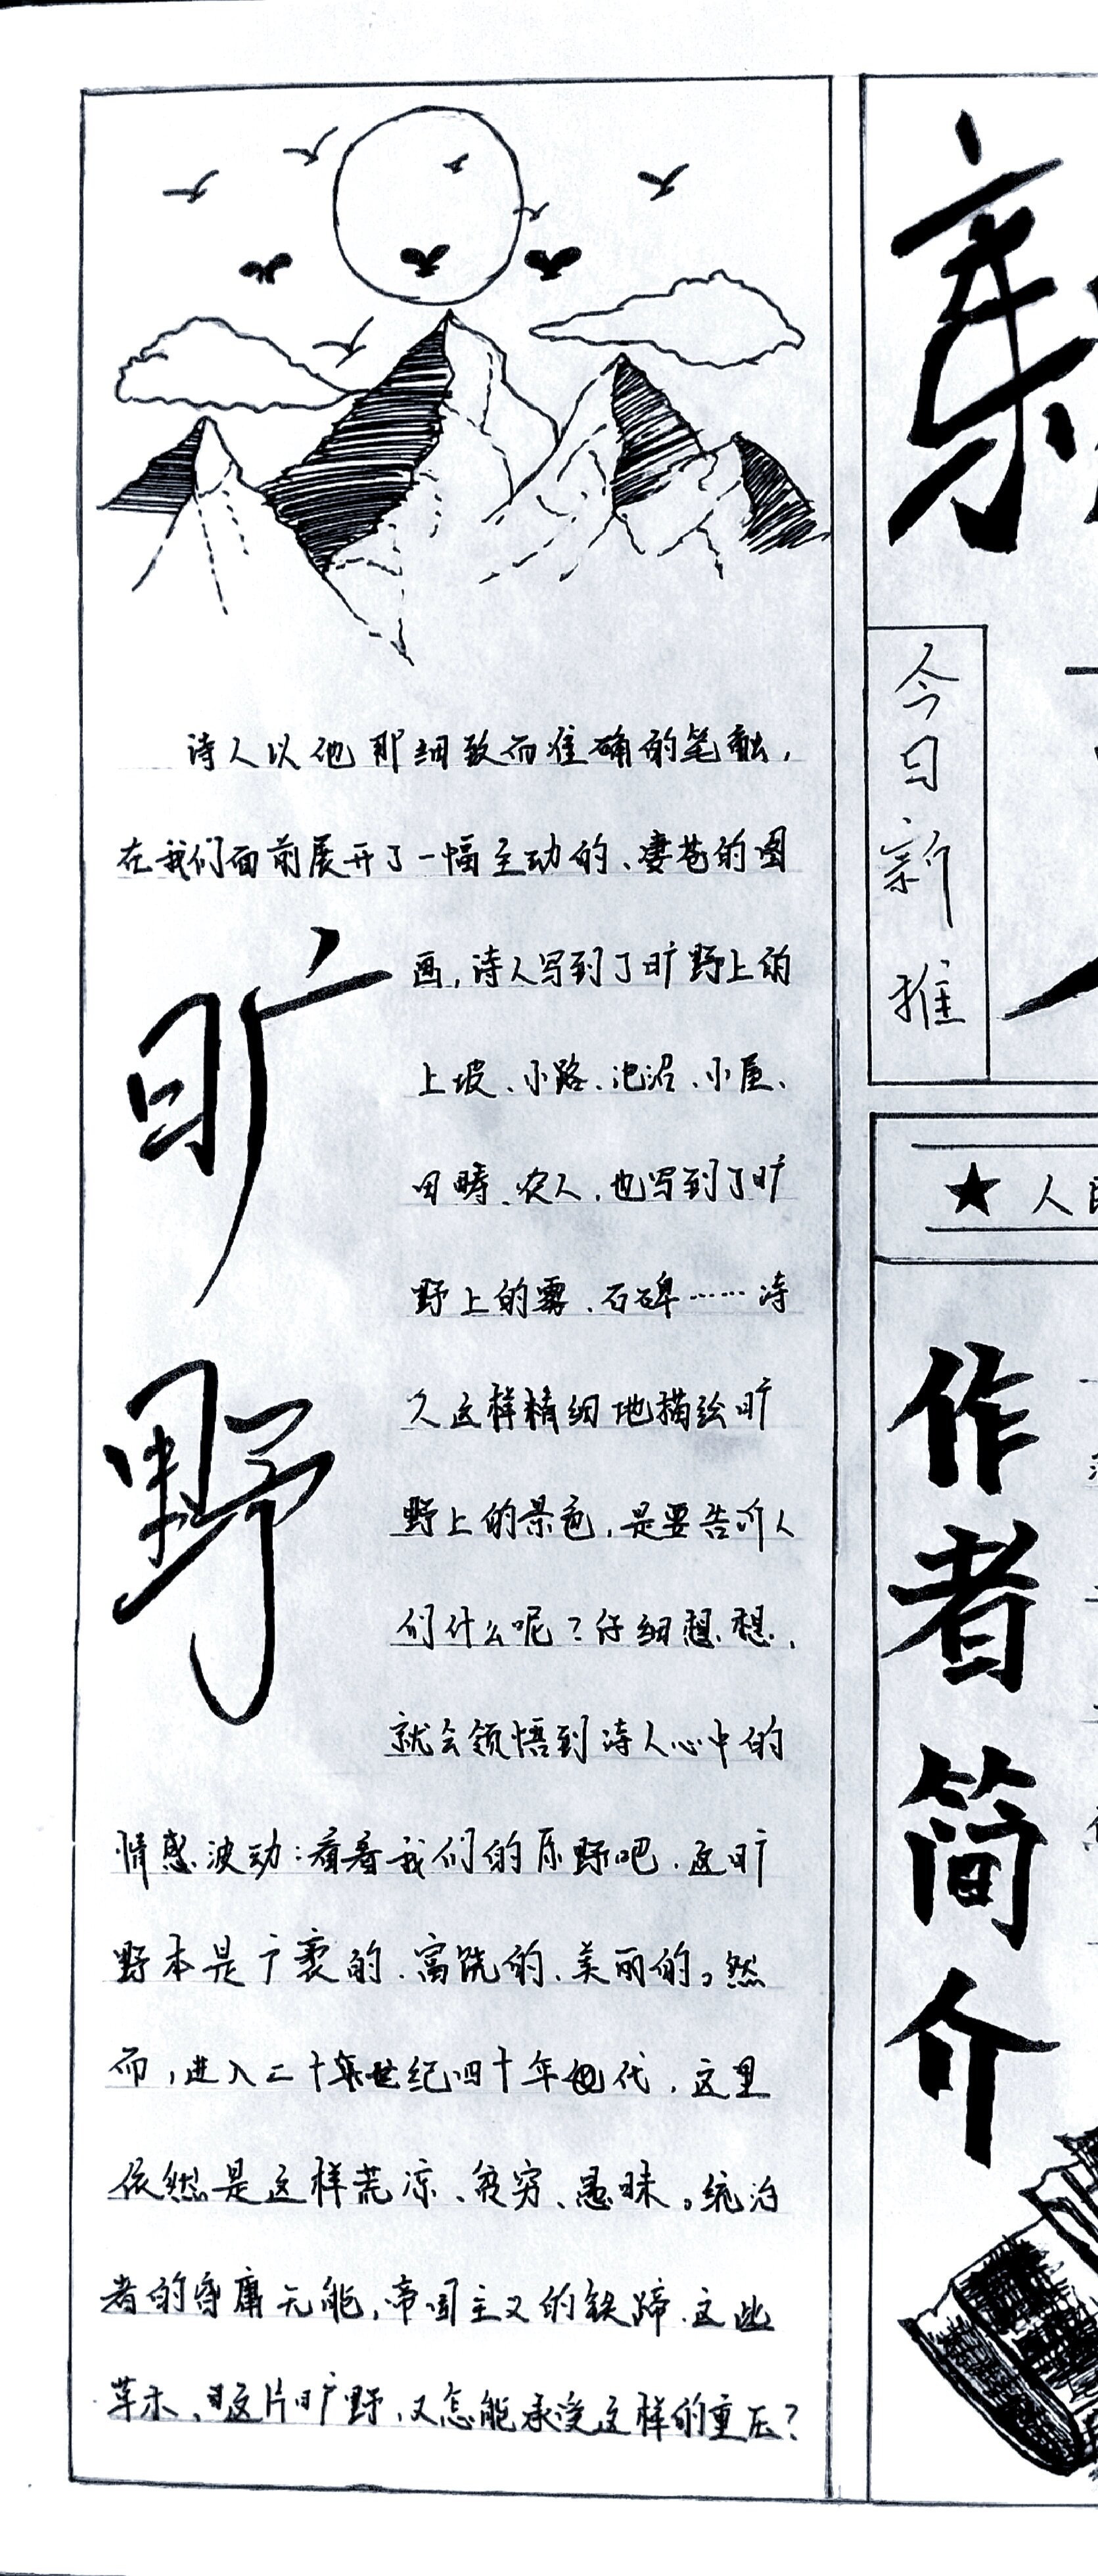 诗人以他那细致而准确的笔触,
在我们面前展开了一幅生动的、凄苍的图
旷野
画,诗人写到了旷野上的
上坡、小路、池沼、小屋、
田畴、农人,也写到了旷
野上的雾、石碑……诗
人这样精细地描绘旷
野上的景色,是要告诉人
们什么呢?仔细想想,
就会领悟到诗人心中的
情感波动:看看我们的原野吧,这旷
野本是广袤的、富饶的、美丽的。然
而,进入二十世纪四十年代,这里
依然是这样荒凉、贫穷、愚昧。统治
者的昏庸无能,帝国主义的铁蹄,这些
草木、这片旷野,又怎能承受这样的重压?
今日新推
★人民
作者简介